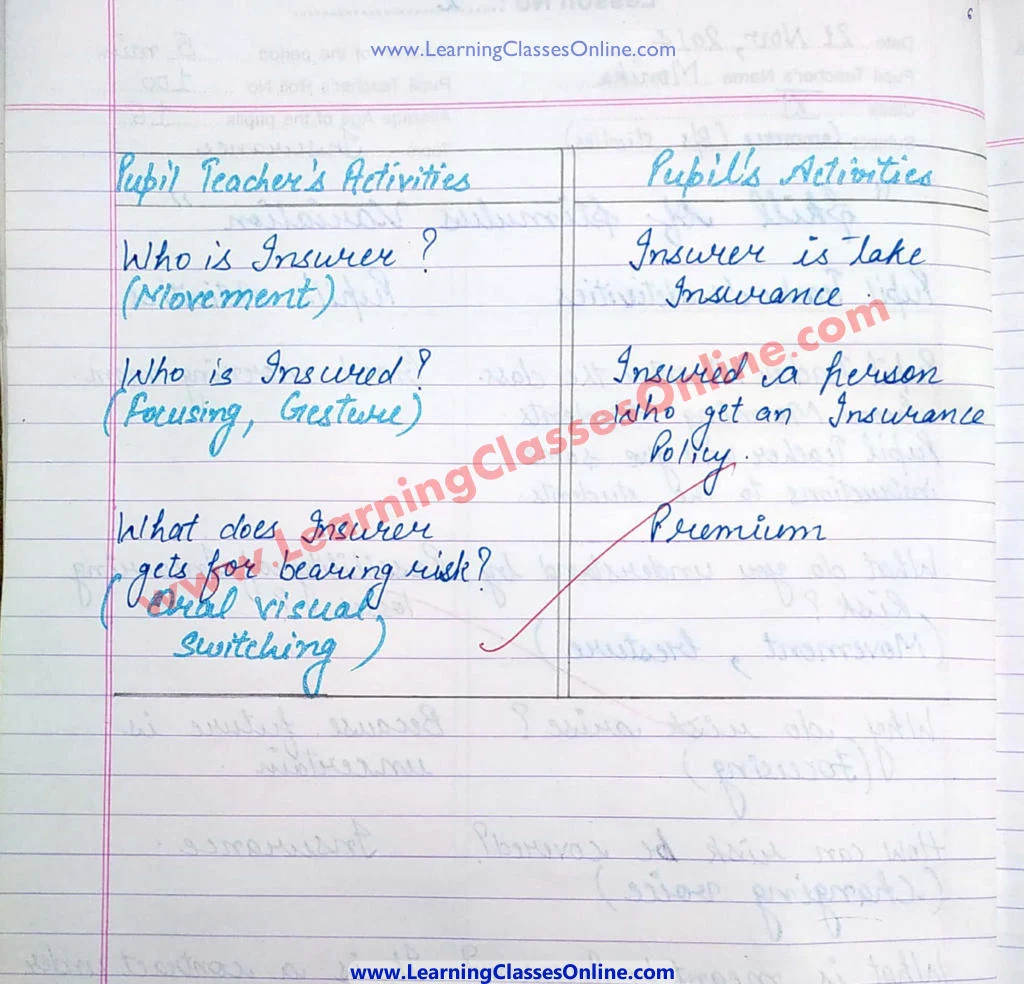 6
www.LearningClassesOnline.com
Pupil Teacher's Activities
Pupil's Activities
Who is Insurer ?
(Movement)
Insurer is take
Insurance.
Who is Insured?
(Focusing, Gesture)
Insured a person
Who get an Insurance
Policy.
What does Insurer
gets for bearing risk?
(Oral visual
switching)
Premium
www.LearningClassesOnline.com
www.LearningClassesOnline.com